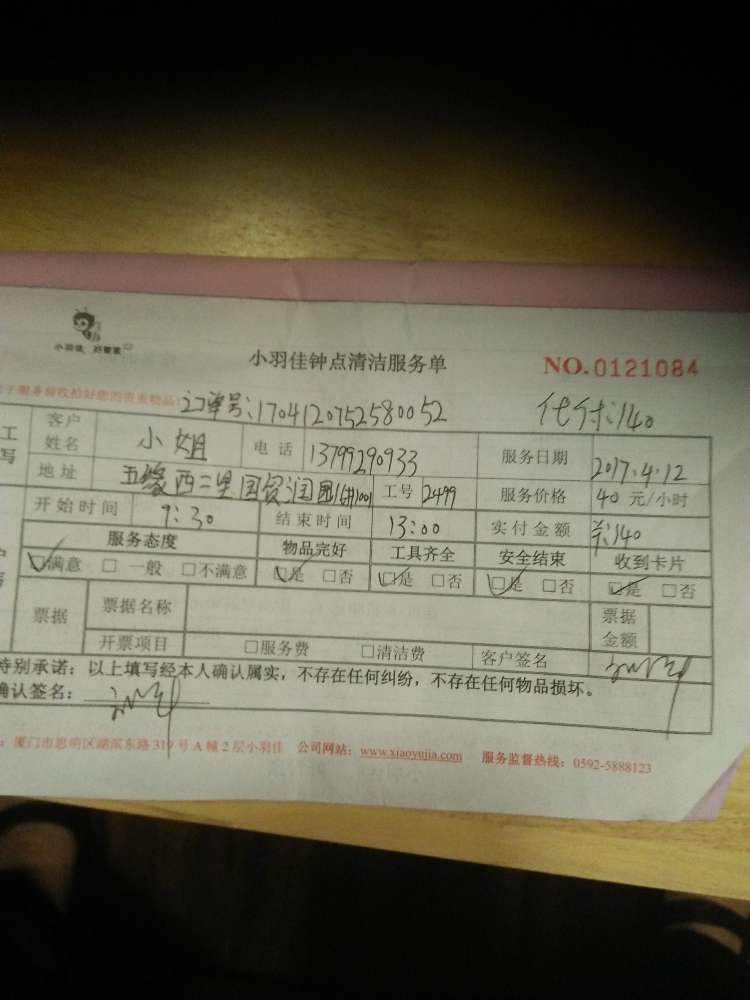 小羽佳 好管家
小羽佳钟点清洁服务单 NO.0121084
于服务前收拾好您的贵重物品 订单号:17041207525800 52 代付:140
工 客户姓名 小姐 电话 13799290933 服务日期 2017.4.12
写 地址 五缘西二里国贸润园 1001 工号 2499 服务价格 40 元/小时
开始时间 9:30 结束时间 13:00 实付金额 140
服务态度 物品完好 工具齐全 安全结束 收到卡片
☑满意 □ 一般 □不满意 ☑是 □否 ☑是 □否 ☑是 □否 ☑是 □否
票据 票据名称 票据金额
开票项目 □服务费 □清洁费 客户签名
特别承诺:以上填写经本人确认属实,不存在任何纠纷,不存在任何物品损坏。
确认签名:
:厦门市思明区湖滨东路 319 号 A 幢 2 层小羽佳 公司网站:www.xiaoyujia.com 服务监督热线:0592-5888123